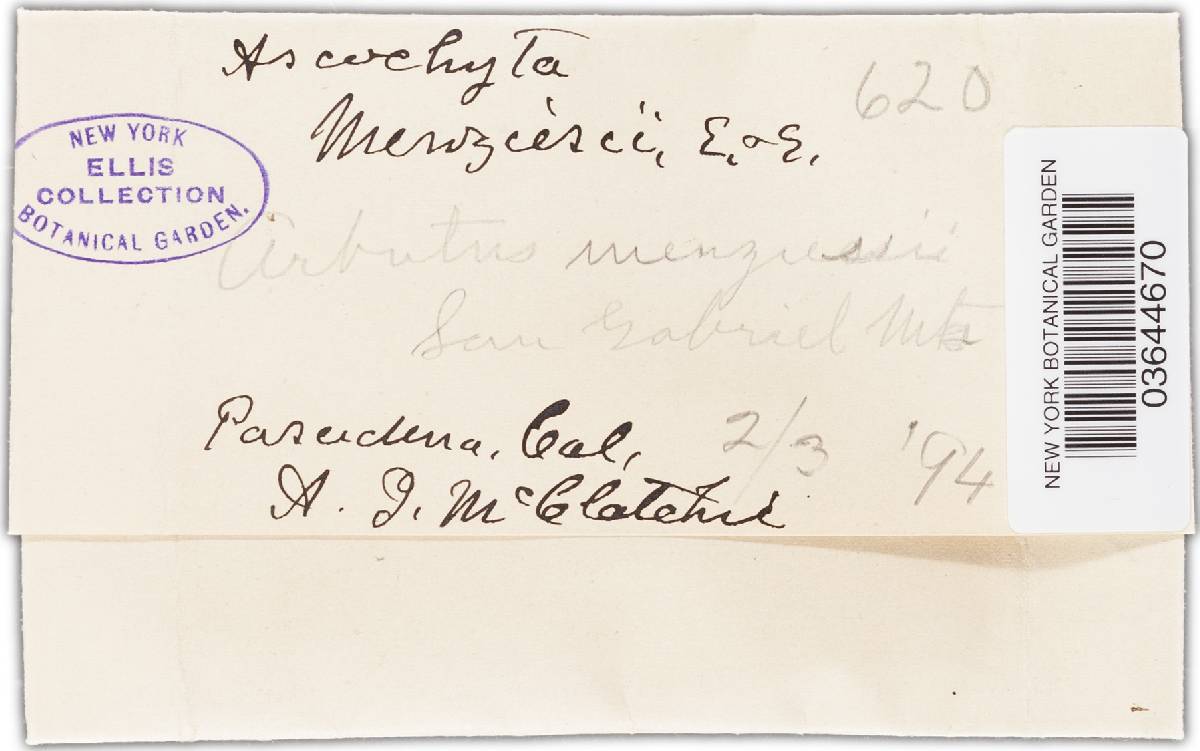 Ascochyta
620
Menziesii, E. & E.
NEW YORK
ELLIS
COLLECTION
BOTANICAL GARDEN.
Arbutus menziesii
San Gabriel Mts
Pasadena, Cal,
2/3 '94
A. J. McClatchie
NEW YORK BOTANICAL GARDEN
03644670